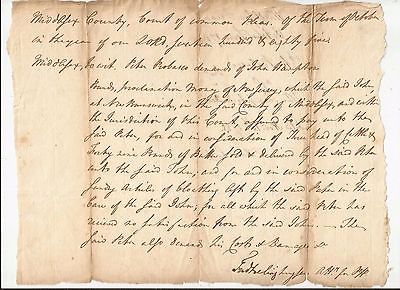 Middlesex County, Court of common Pleas. Of the Term of October
in the year of our Lord, seventeen hundred & eighty five
Middlesex, to wit. Peter demands of John Hampton
proclamation Money of New Jersey, which the said John,
at New Brunswick, in the said County of Middlesex, and within
the Jurisdiction of this Court, to pay unto the
said Peter, for and in consideration of Three head of Cattle &
Forty nine Pounds of Butter sold & delivered by the said Peter
unto the said John; and for and in consideration of
Sundry Articles of Cloathing left by the said Peter in the
Care of the said John; for all which the said Peter has
received no satisfaction from the said John. — The
said Peter also demands his Costs & Damages &c
Fred Frelinghuysen Atty for